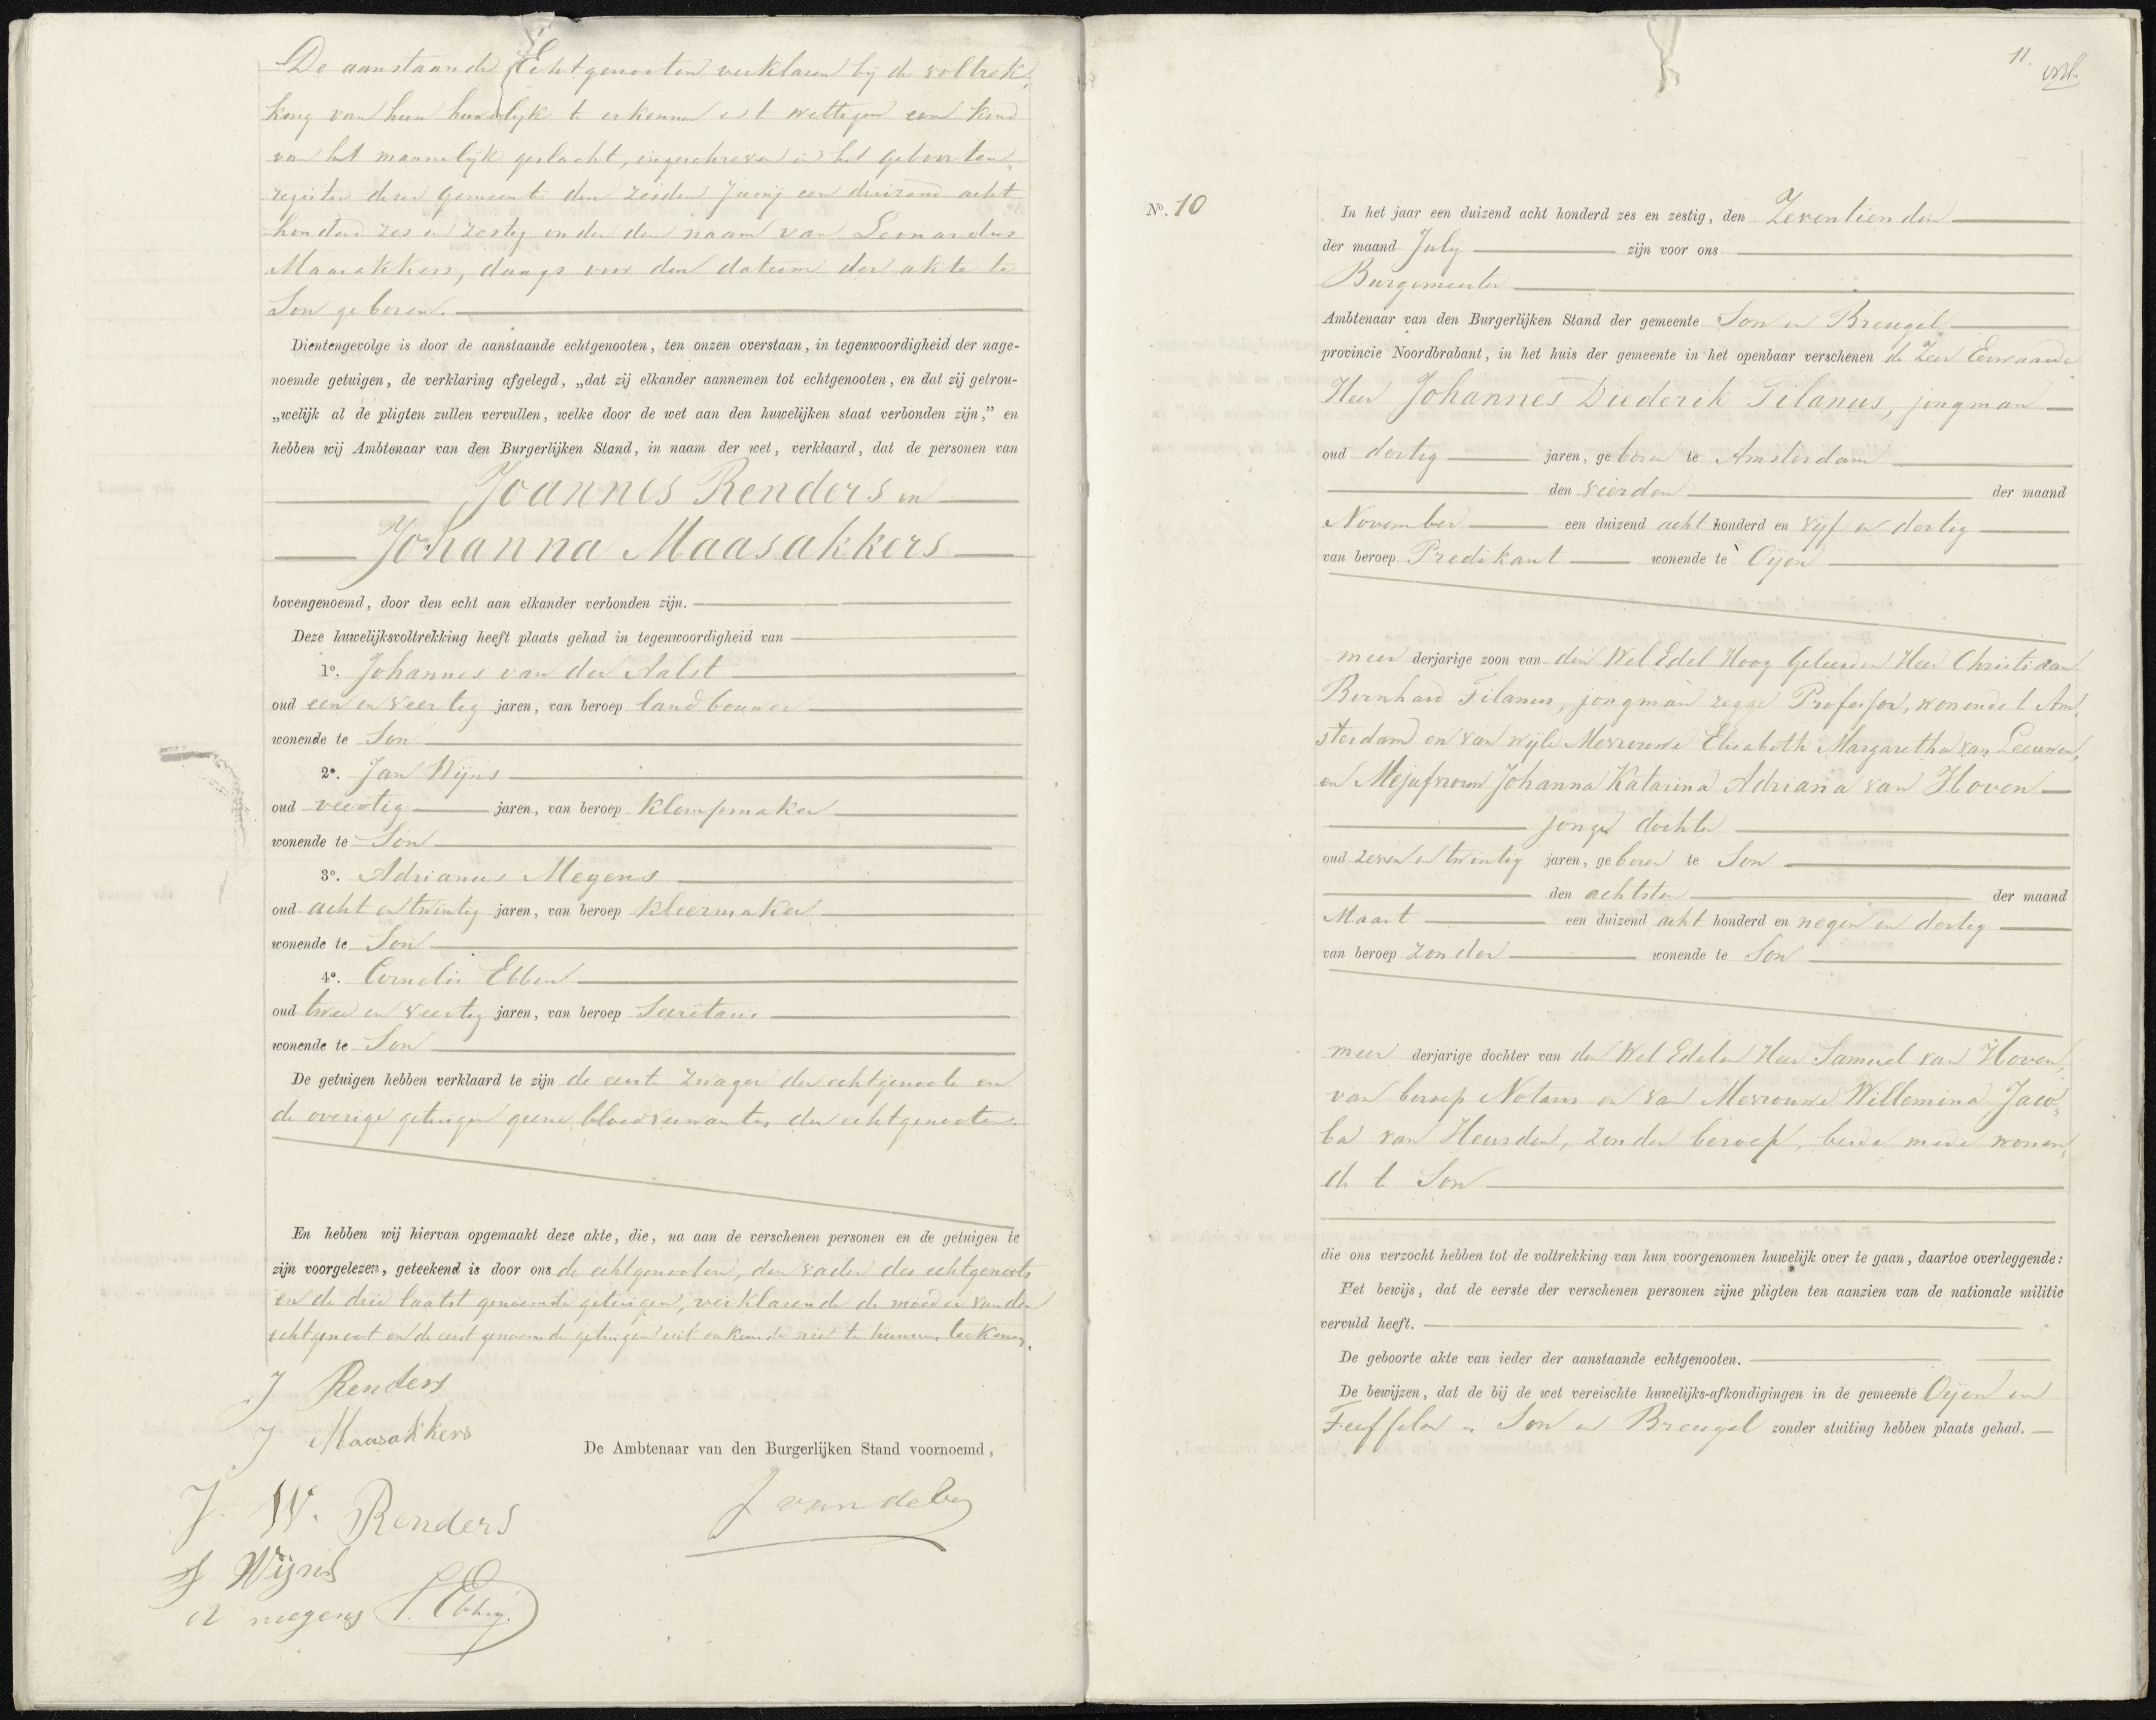 De aanstaande Echtgenooten verklaren bij de voltrek-
king van hun huwelijk te erkennen en te wettigen een kind
van het mannelijk geslacht, ingeschreven in het geboorten-
register dezer gemeente den zesden Junij een duizend acht
honderd zes en zestig onder den naam van Leonardus
Maasakkers, daags voor den datum der akte te
Son geboren.
Dientengevolge is door de aanstaande echtgenooten, ten onzen overstaan, in tegenwoordigheid der nage-
noemde getuigen, de verklaring afgelegd, „dat zij elkander aannemen tot echtgenooten, en dat zij getrou-
„welijk al de pligten zullen vervullen, welke door de wet aan den huwelijken staat verbonden zijn," en
hebben wij Ambtenaar van den Burgerlijken Stand, in naam der wet, verklaard, dat de personen van
Joannes Renders en
Johanna Maasakkers
bovengenoemd, door den echt aan elkander verbonden zijn.
Deze huwelijksvoltrekking heeft plaats gehad in tegenwoordigheid van
1º. Johannes van der Aalst
oud een en veertig jaren, van beroep landbouwer
wonende te Son
2º. Jan Wijns
oud veertig jaren, van beroep Klompmaker
wonende te Son
3º. Adrianus Megens
oud acht en twintig jaren, van beroep Kleermaker
wonende te Son
4º. Cornelis Ebben
oud twee en veertig jaren, van beroep Secretaris
wonende te Son
De getuigen hebben verklaard te zijn de eerste zwager der echtgenoote en
de overige getuigen geene bloedverwanten der echtgenooten
En hebben wij hiervan opgemaakt deze akte, die, na aan de verschenen personen en de getuigen te
zijn voorgelezen, geteekend is door ons de echtgenooten, den vader des echtgenoots
en de drie laatst genoemde getuigen, verklarende de moeder van den
echtgenoot en de eerst genoemde getuigen uit onkunde niet te kunnen teekenen.
J Renders
J Maasakkers
De Ambtenaar van den Burgerlijken Stand voornoemd,
J. W. Renders
J Wijns
A megens
11.
Nº. 10
In het jaar een duizend acht honderd zes en zestig, den Zeventienden
der maand July zijn voor ons
Burgemeester
Ambtenaar van den Burgerlijken Stand der gemeente Son en Breugel
provincie Noordbrabant, in het huis der gemeente in het openbaar verschenen de Zeer Eerwaarde
Heer Johannes Diederik Tilanus, jongman
oud dertig jaren, geboren te Amsterdam
den vierden der maand
November een duizend acht honderd en vijf en dertig
van beroep Predikant wonende te Oijen
meer derjarige zoon van den Wel Edel Hoog Geleerden Heer Christiaan
Bernhard Tilanus, jongman zegge Professor, wonende te Am-
sterdam en van wijle Mevrouwe Elisabeth Margaretha van Leeuwen,
en Mejufvrouw Johanna Katarina Adriana van Hoven
jonge dochter
oud zeven en twintig jaren, geboren te Son
den achtsten der maand
Maart een duizend acht honderd en negen en dertig
van beroep zonder wonende te Son
meer derjarige dochter van den Wel Edelen Heer Samuel van Hoven,
van beroep Notaris en van Mevrouwe Willemina Jaco-
ba van Heusden, zonder beroep, beide mede wonen-
de te Son
die ons verzocht hebben tot de voltrekking van hun voorgenomen huwelijk over te gaan, daartoe overleggende:
Het bewijs, dat de eerste der verschenen personen zijne pligten ten aanzien van de nationale militie
vervuld heeft.
De geboorte akte van ieder der aanstaande echtgenooten.
De bewijzen, dat de bij de wet vereischte huwelijks-afkondigingen in de gemeente Oijen en
Teeffelen en Son en Breugel zonder stuiting hebben plaats gehad.